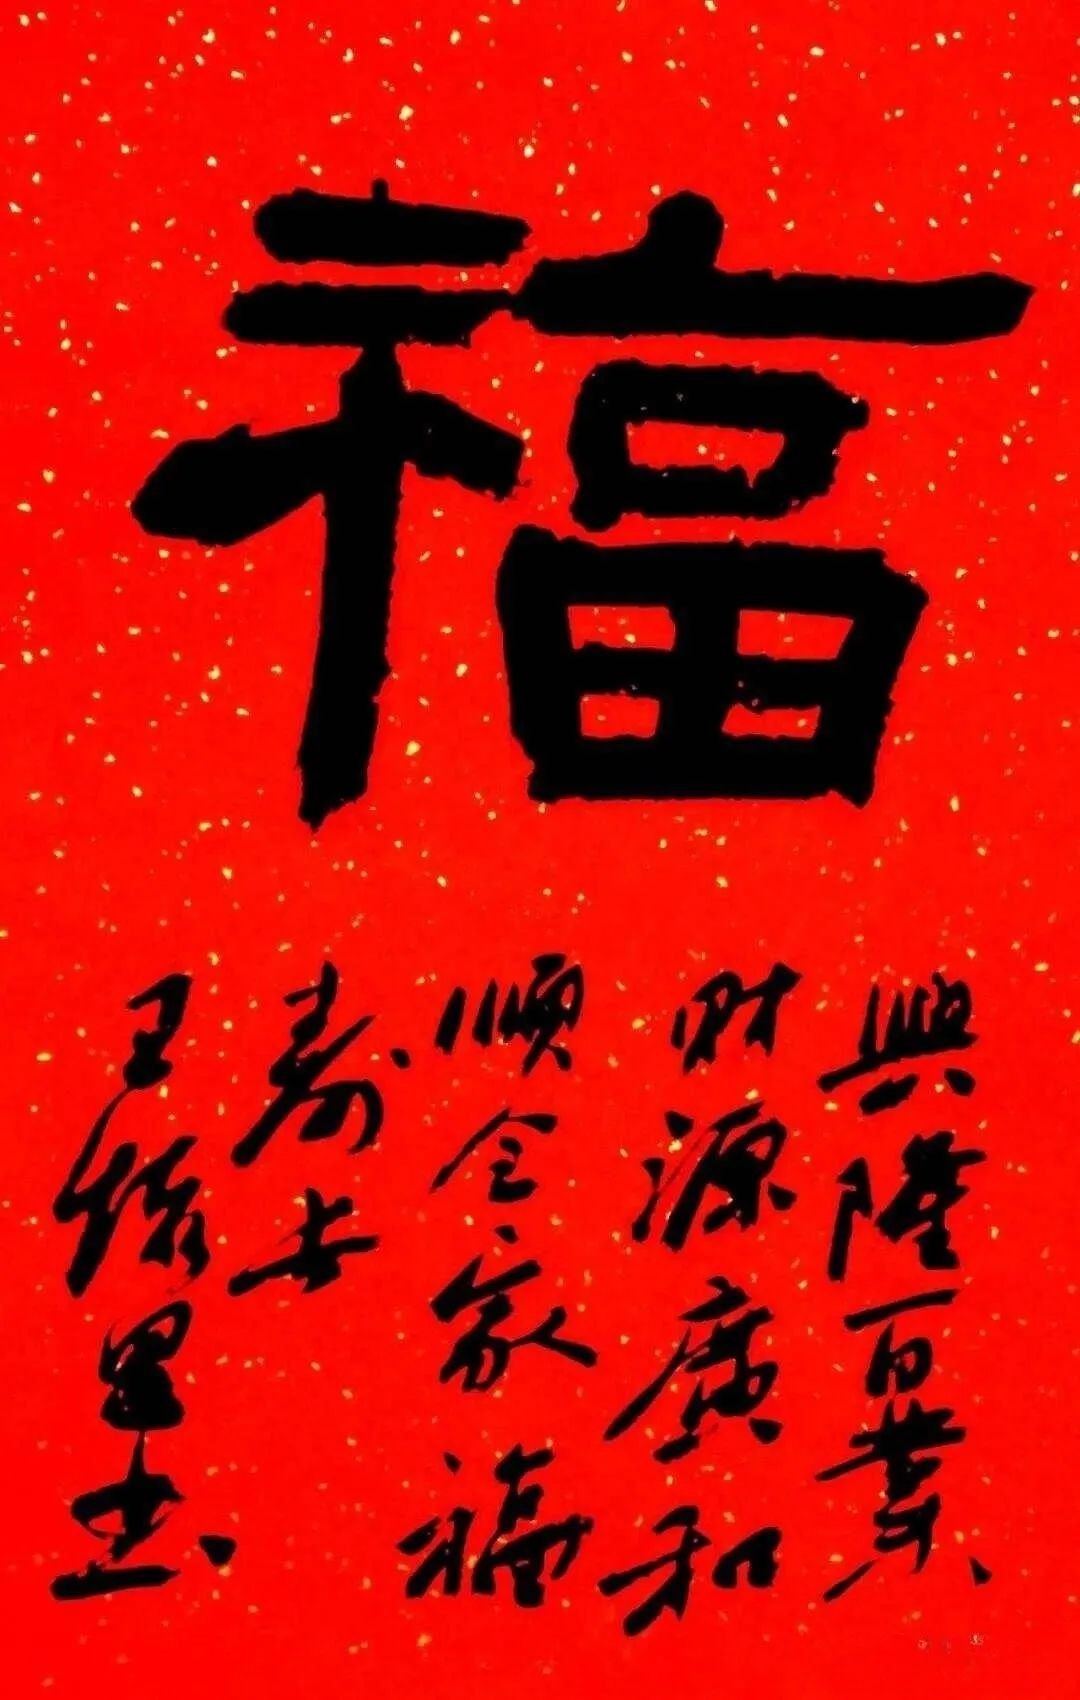 福
興隆百業
財源廣和
順全家福
壽安
王里书